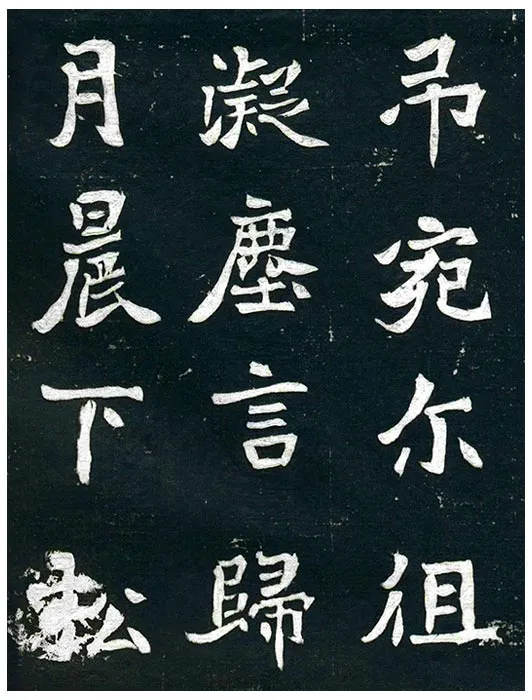 吊宛尔徂
凝塵言歸
月晨下松